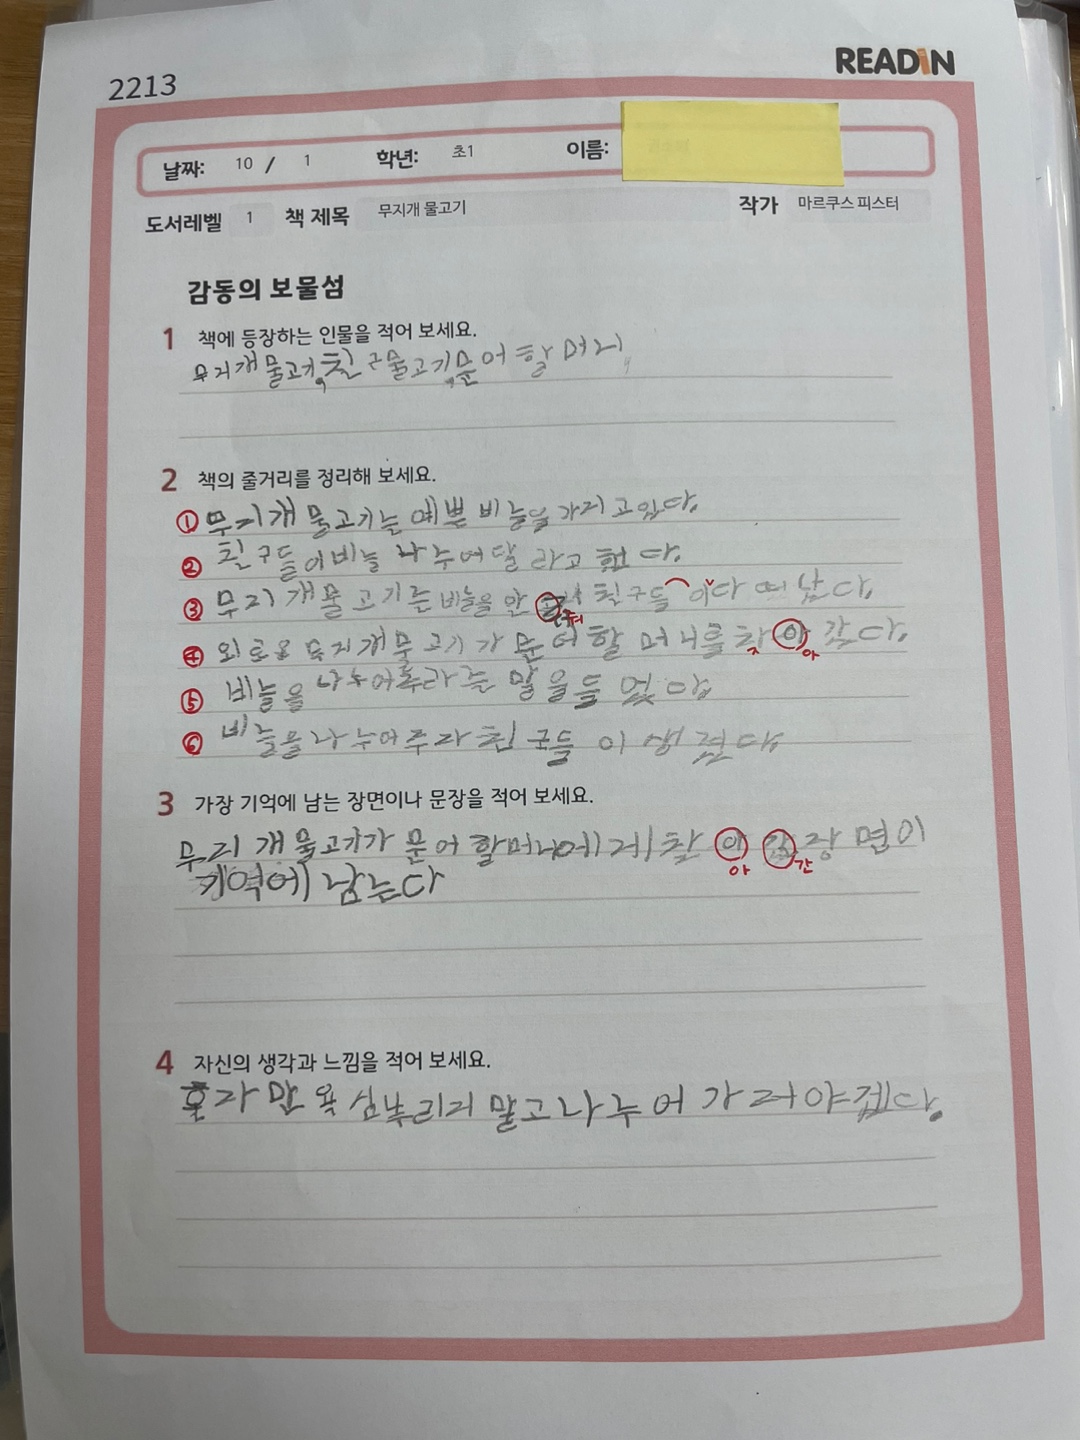 READiN
2213
날짜: 10 / 1 학년: 초1 이름:
도서레벨 1 책 제목 무지개 물고기 작가 마르쿠스 피스터
감동의 보물섬
1 책에 등장하는 인물을 적어 보세요.
무지개물고기, 친구물고기, 문어할머니,
2 책의 줄거리를 정리해 보세요.
① 무지개 물고기는 예쁜 비늘을 가지고 있다.
② 친구들이 비늘 나누어달라고 했다.
③ 무지개물고기는 비늘을 안 줘 친구들이 다 떠났다.
④ 외로운 무지개물고기가 문어할머니를 찾아 갔다.
아
⑤ 비늘을 나누어주라는 말을 들었다.
⑥ 비늘을 나누어주자 친구들이 생겼다.
3 가장 기억에 남는 장면이나 문장을 적어 보세요.
무지개물고기가 문어 할머니에게 찾 장면이
아 간
기억에 남는다
4 자신의 생각과 느낌을 적어 보세요.
혼자만 욕심부리지 말고 나누어 가져야겠다.